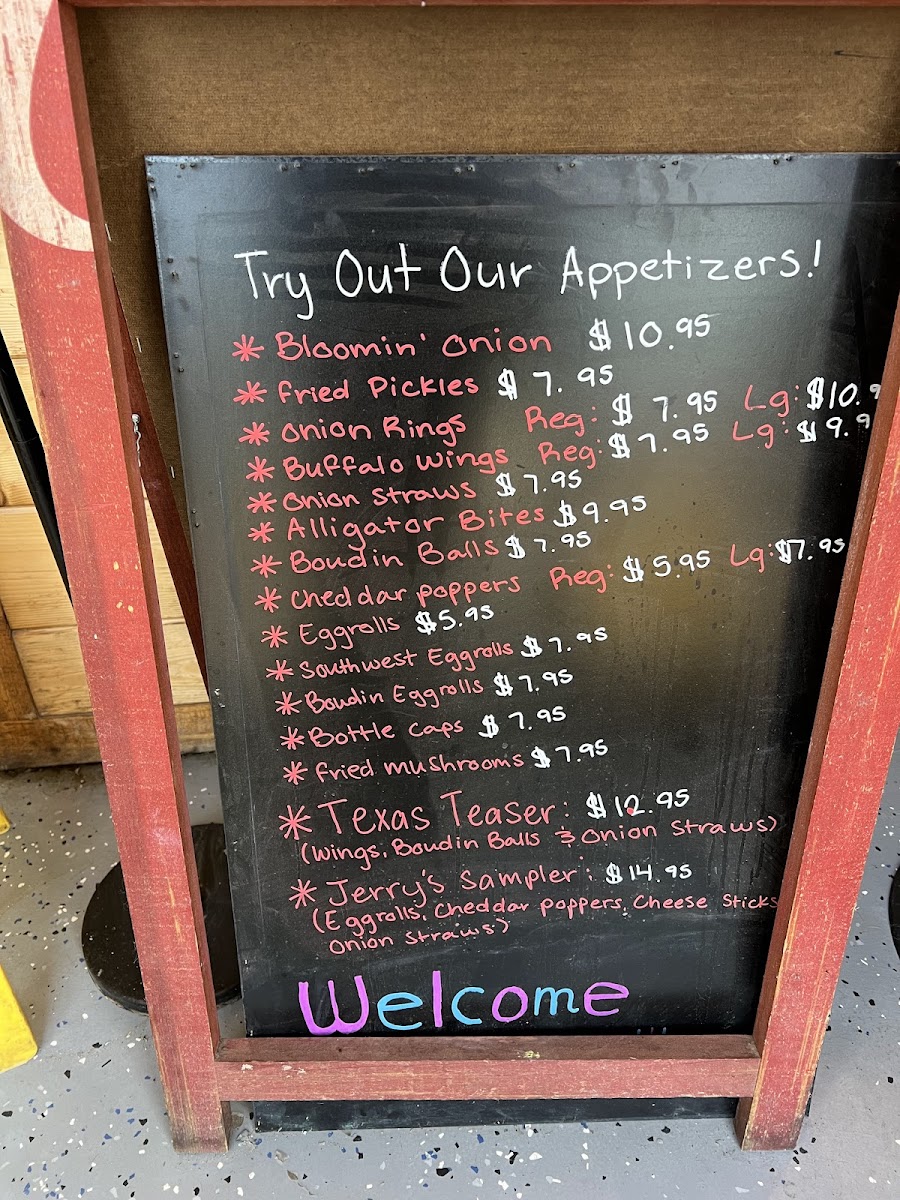 Try Out Our Appetizers!
* Bloomin' Onion $10.95
* Fried Pickles $7.95
* Onion Rings Reg: $7.95 Lg: $10.9
* Buffalo Wings Reg: $7.95 Lg: $9.9
* Onion Straws $7.95
* Alligator Bites $9.95
* Boudin Balls $7.95
* Cheddar poppers Reg: $5.95 Lg: $7.95
* Eggrolls $5.95
* Southwest Eggrolls $7.95
* Boudin Eggrolls $7.95
* Bottle Caps $7.95
* Fried mushrooms $7.95
* Texas Teaser: $12.95
(Wings, Boudin Balls & Onion Straws)
* Jerry's Sampler: $14.95
(Eggrolls, Cheddar poppers, Cheese Sticks
Onion Straws)
Welcome